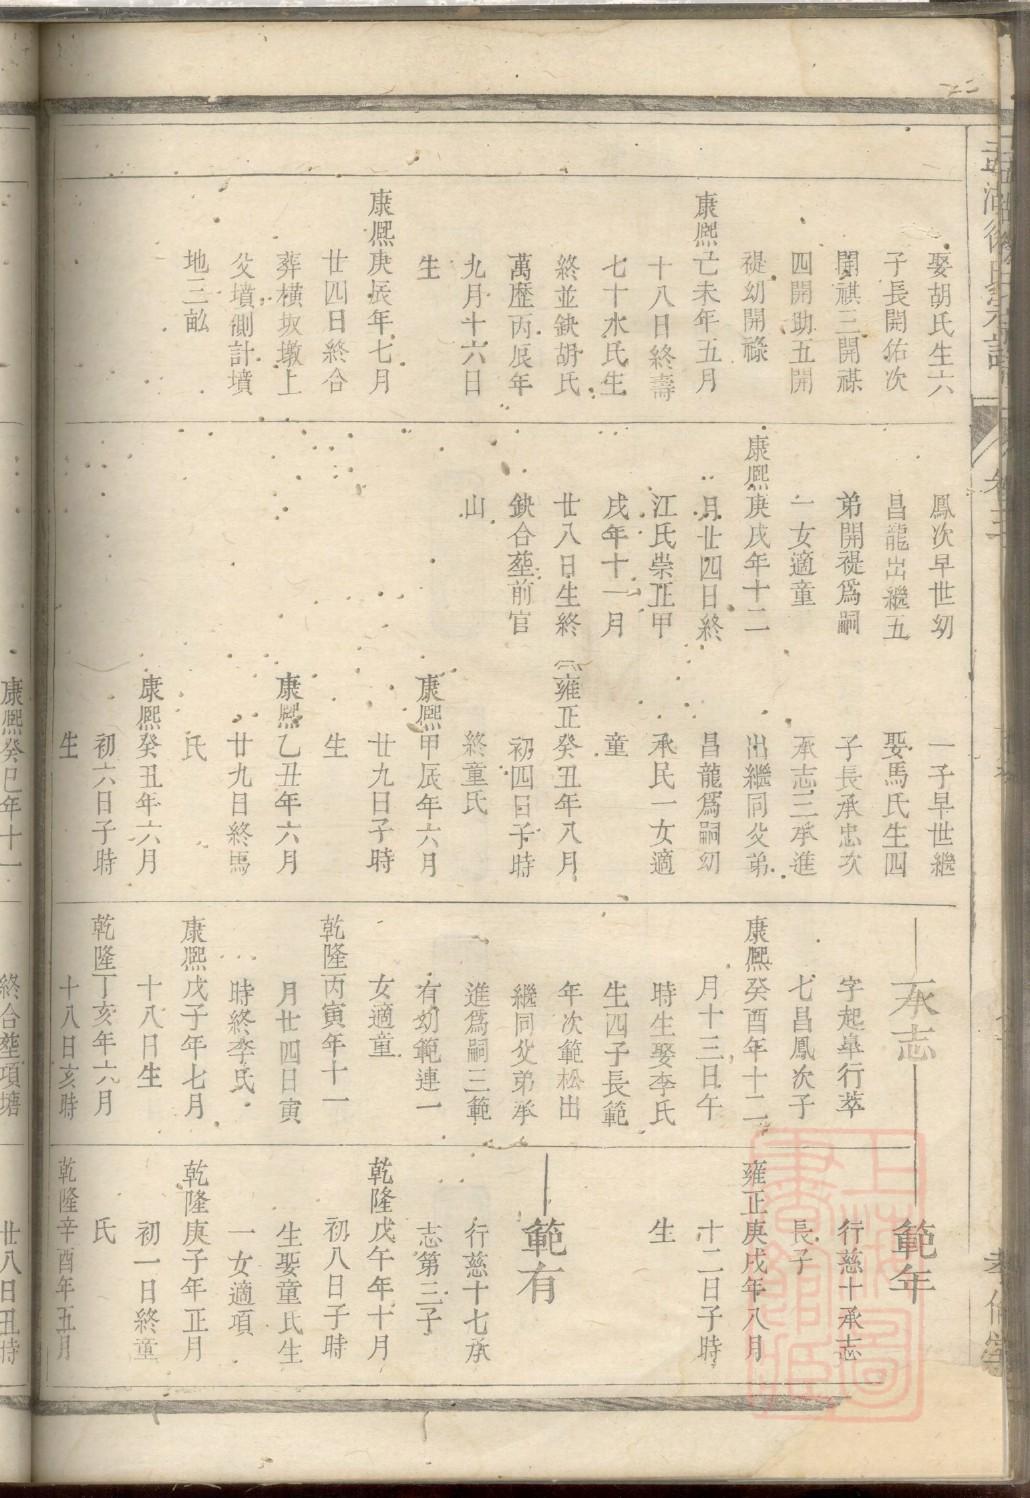 娶胡氏生六
子長開佑次
開祺三開祺
四開助五開
禔幼開祿
康熙己未年五月
十八日終壽
七十水氏生
終並鈌胡氏
萬歷丙辰年
九月十六日
生
康熙庚辰年七月
廿四日終合
葬橫坂墩上
父墳側計墳
地三畝
鳳次早世幼
昌龍出繼五
弟開禔爲嗣
一女適童
康熙庚戌年十二
月廿四日終
江氏崇正甲
戌年十一月
廿八日生終
鈌合塟前官
山
一子早世繼
娶馬氏生四
子長承忠次
承志三承進
出繼同父弟
昌龍爲嗣幼
承民一女適
童
雍正癸丑年八月
初四日子時
終童氏
康熙甲辰年六月
廿九日子時
生
康熙乙丑年六月
廿九日終馬
氏
康熙癸丑年六月
初六日子時
生
承志
字起皋行萃
七昌鳳次子
康熙癸酉年十二
月十三日午
時生娶李氏
生四子長範
年次範松出
繼同父弟承
進爲嗣三範
有幼範連一
女適童
乾隆丙寅年十一
月廿四日寅
時終李氏
康熙戊子年七月
十八日生
乾隆丁亥年六月
十八日亥時
範年
行慈十承志
長子
雍正庚戌年八月
十二日子時
生
範有
行慈十七承
志第三子
乾隆戊午年十月
初八日子時
生娶童氏生
一女適項
乾隆庚子年正月
初一日終童
氏
乾隆辛酉年五月
康熙癸巳年十一
終合塟項塘
廿八日丑時
上海圖書館藏